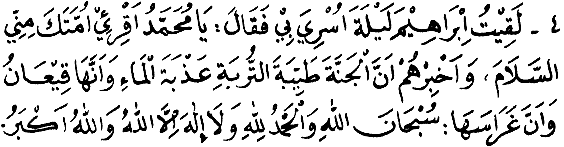 ٤ - لَقِيْتُ اِبْرَاهِيْمَ لَيْلَةَ اُسْرِيَ بِيْ فَقَالَ : يَا مُحَمَّدُ اَقْرِئْ اُمَّتَكَ مِنِّي
السَّلَامَ ، وَاَخْبِرْهُمْ اَنَّ الْجَنَّةَ طَيِّبَةُ التُّرْبَةِ عَذْبَةُ الْمَاءِ وَاَنَّهَا قِيْعَانُ
وَاَنَّ غَرَاسَهَا : سُبْحَانَ اللهِ وَالْحَمْدُ لِلّٰهِ وَلَا اِلٰهَ اِلَّا اللهُ وَاللهُ اَكْبَرُ .